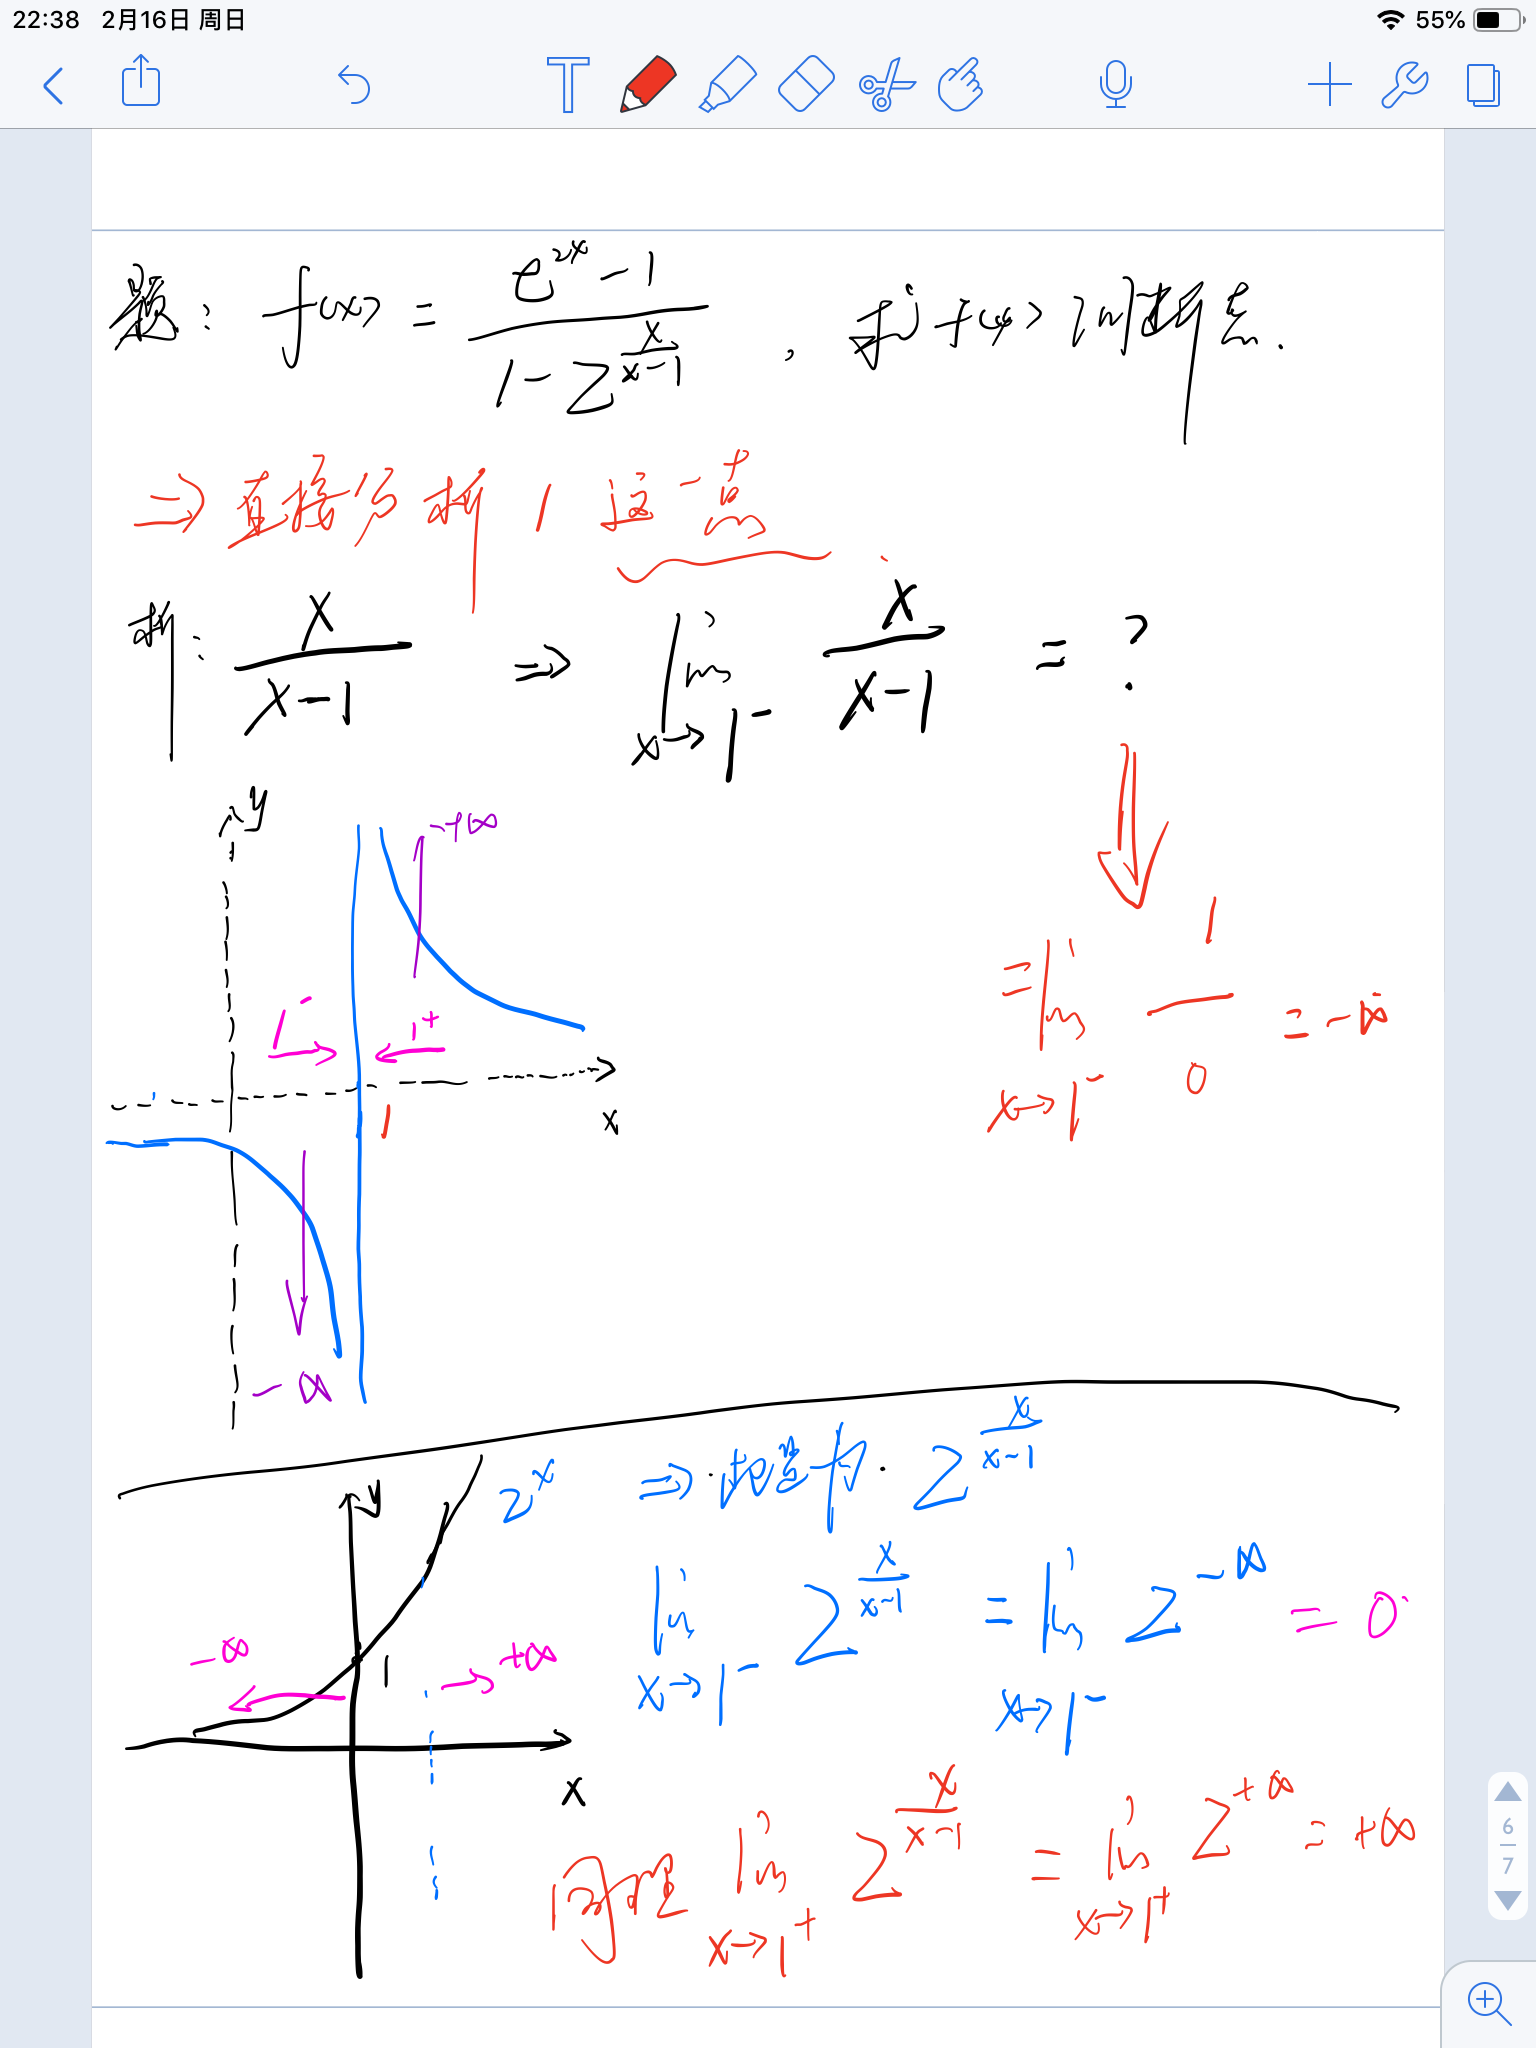 22:38 2月16日 周日 55%
T
题: f(x) = (e^{2x} - 1) / (1 - 2^{x/(x-1)}) , 求 f(x) 间断点.
⇒ 直接分析 1 这一点
析: x/(x-1) ⇒ lim_{x→1⁻} x/(x-1) = ?
y
+∞
1⁻ 1⁺
= lim_{x→1⁻} 1/0 = -∞
1 x
-∞
2^x ⇒ 把 为 2^{x/(x-1)}
y
lim_{x→1⁻} 2^{x/(x-1)} = lim_{x→1⁻} 2^{-∞} = 0
-∞ 1 → +∞
x
同理 lim_{x→1⁺} 2^{x/(x-1)} = lim_{x→1⁺} 2^{+∞} = +∞
6
7